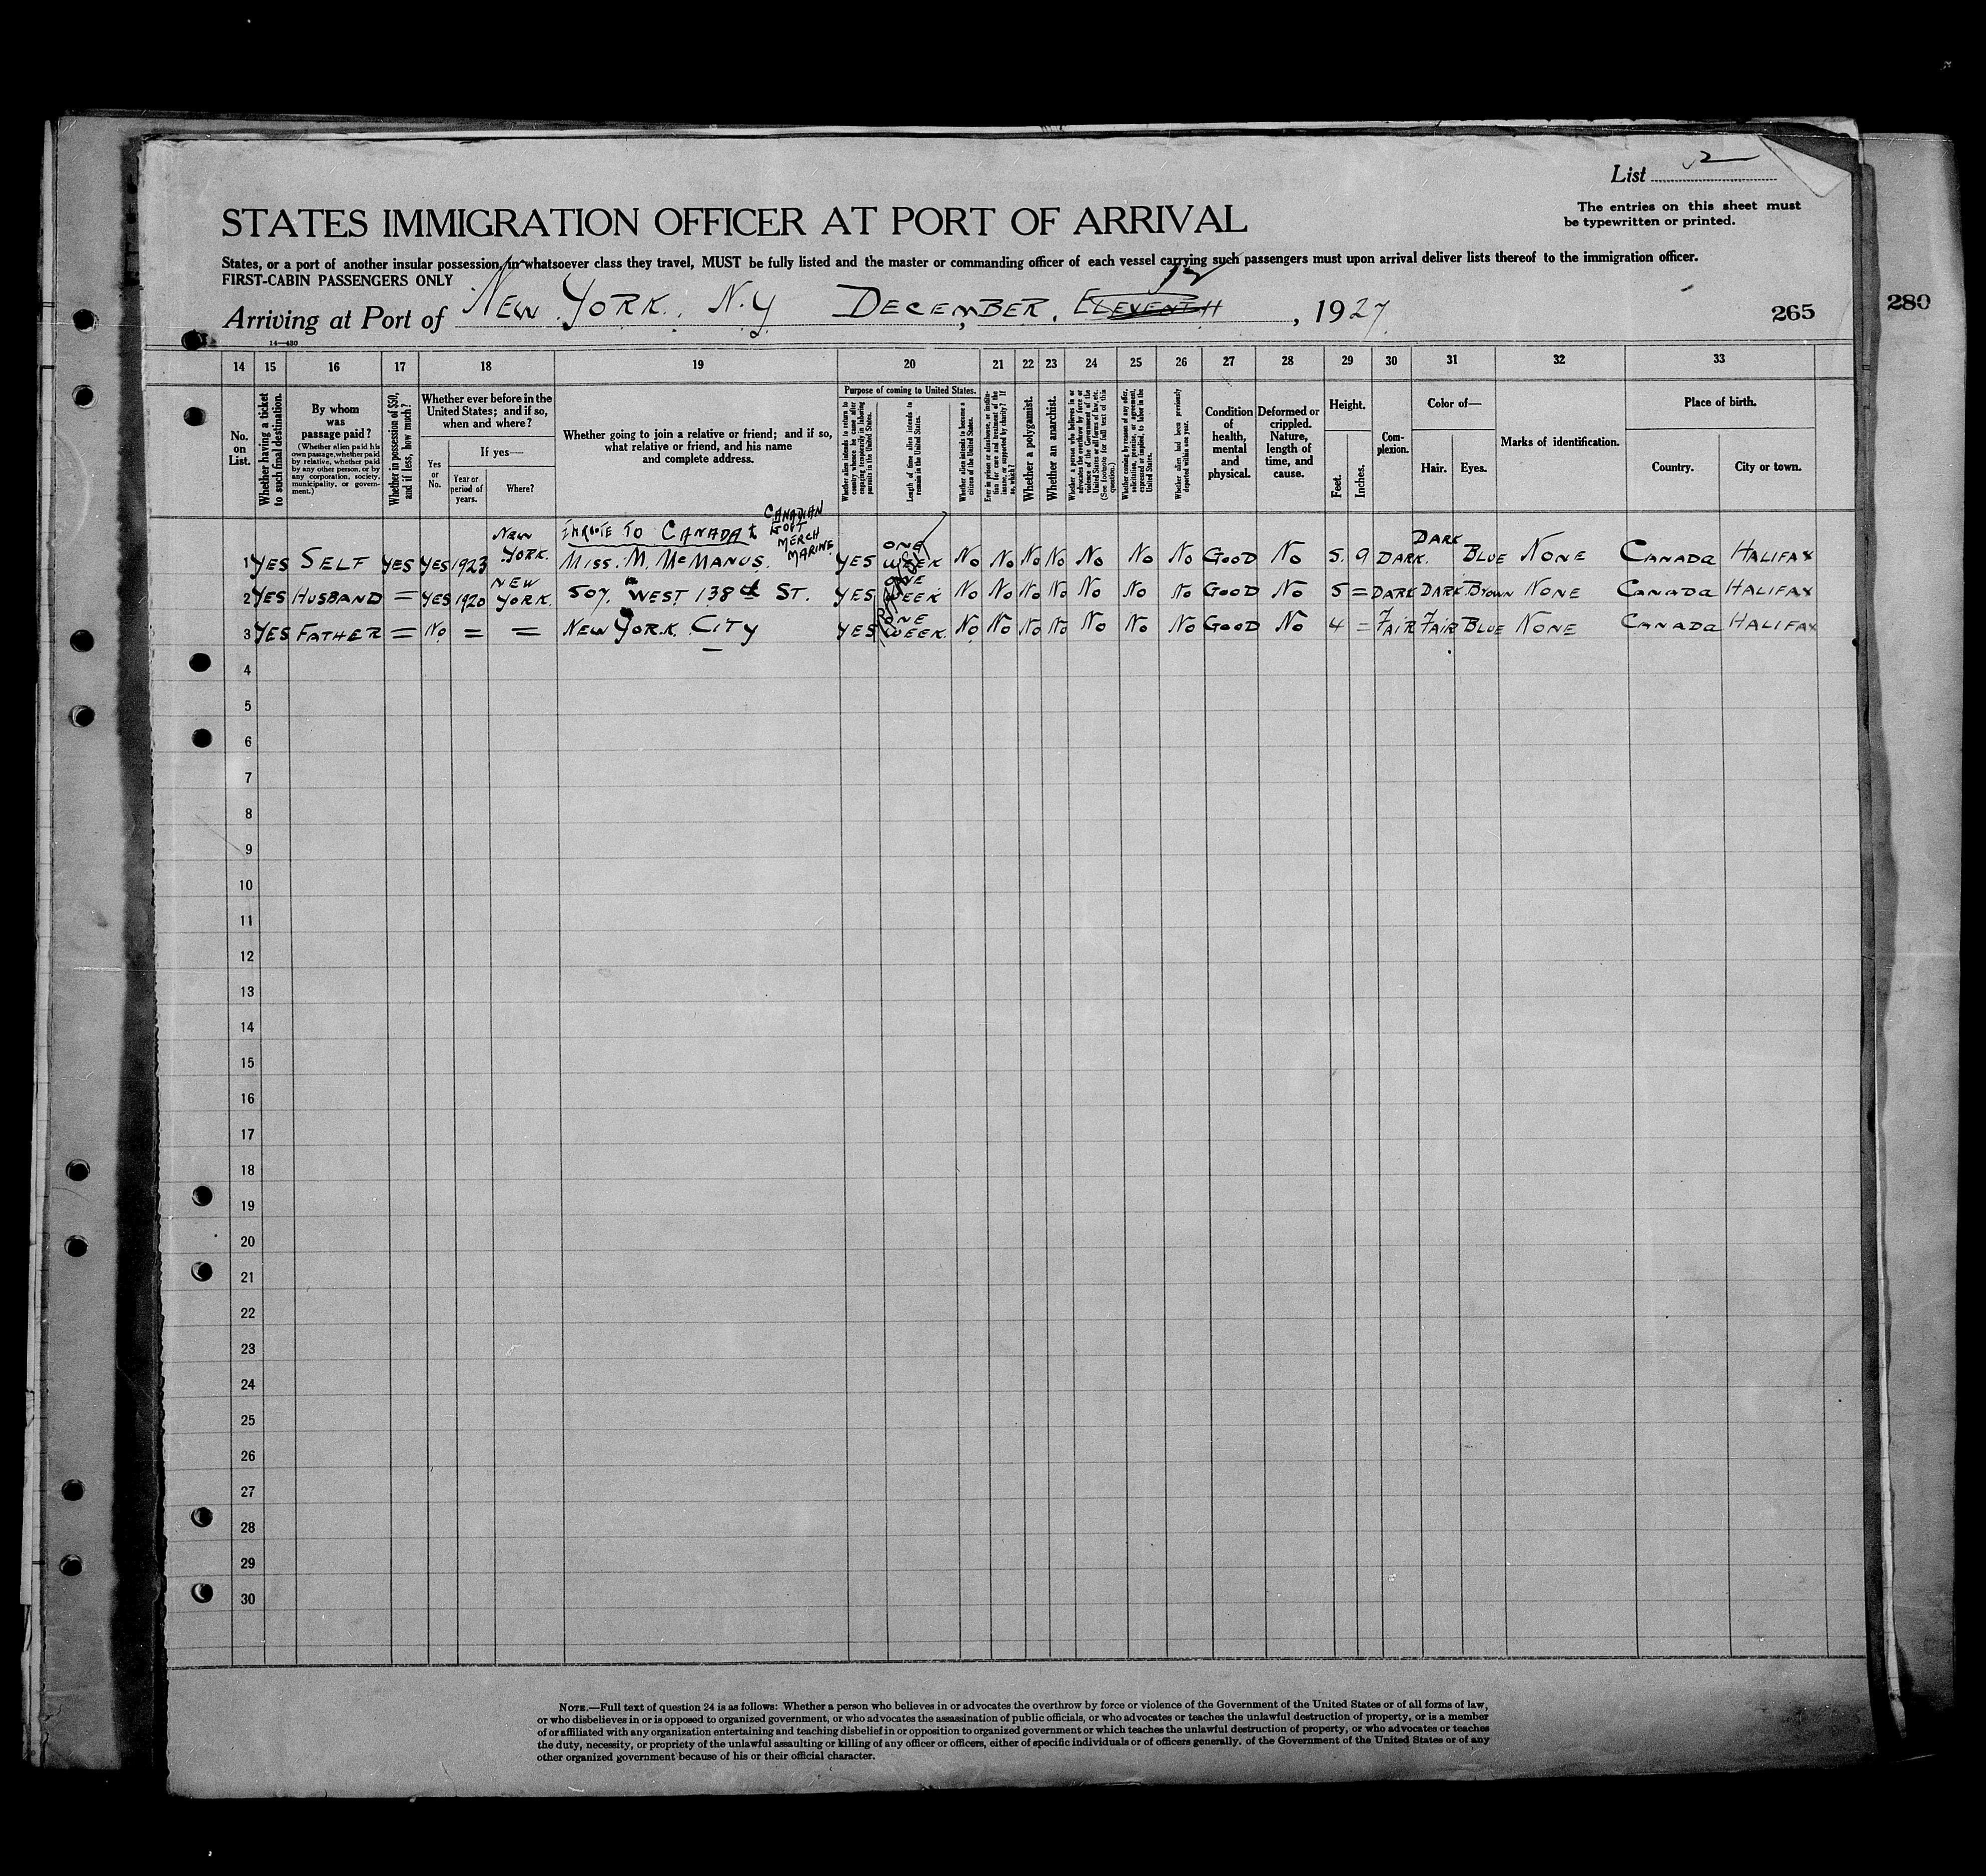 List 2
The entries on this sheet must
be typewritten or printed.
STATES IMMIGRATION OFFICER AT PORT OF ARRIVAL
States, or a port of another insular possession, in whatsoever class they travel, MUST be fully listed and the master or commanding officer of each vessel carrying such passengers must upon arrival deliver lists thereof to the immigration officer.
FIRST-CABIN PASSENGERS ONLY
12
Arriving at Port of NEW YORK, N.Y DECEMBER, ELEVENTH, 1927
265
280
14—430
14 15 16 17 18 19 20 21 22 23 24 25 26 27 28 29 30 31 32 33
No. on List.
Whether having a ticket to such final destination.
By whom was passage paid?
(Whether alien paid his own passage, whether paid by relative, whether paid by any other person, or by any corporation, society, municipality, or government.)
Whether in possession of $50, and if less, how much?
Whether ever before in the United States; and if so, when and where?
Yes or No.
If yes—
Year or period of years.
Where?
Whether going to join a relative or friend; and if so, what relative or friend, and his name and complete address.
Purpose of coming to United States.
Whether alien intends to return to country whence he came after engaging temporarily in laboring pursuits in the United States.
Length of time alien intends to remain in the United States.
Whether alien intends to become a citizen of the United States.
Ever in prison or almshouse, or institution for care and treatment of the insane, or supported by charity? If so, which?
Whether a polygamist.
Whether an anarchist.
Whether a person who believes in or advocates the overthrow by force or violence of the Government of the United States or all forms of law, etc. (See footnote for full text of this question.)
Whether coming by reason of any offer, solicitation, promise, or agreement, expressed or implied, to labor in the United States.
Whether alien had been previously deported within one year.
Condition of health, mental and physical.
Deformed or crippled. Nature, length of time, and cause.
Height.
Feet.
Inches.
Complexion.
Color of—
Hair.
Eyes.
Marks of identification.
Place of birth.
Country.
City or town.
ENROUTE TO CANADA CANADIAN GOVT MERCH MARINE
1 YES SELF YES YES 1923 NEW YORK. MISS. M. McMANUS. YES ONE WEEK No No No No No No No GOOD No 5. 9 DARK. DARK BLUE NONE CANADA HALIFAX
2 YES HUSBAND = YES 1920 NEW YORK. 507, WEST 138th ST. YES ONE WEEK No No No No No No No GOOD No 5 = DARK DARK BROWN NONE CANADA HALIFAX
3 YES FATHER = No = = NEW YORK CITY YES ONE WEEK. No No No No No No No GOOD No 4 = FAIR FAIR BLUE NONE CANADA HALIFAX
4
5
6
7
8
9
10
11
12
13
14
15
16
17
18
19
20
21
22
23
24
25
26
27
28
29
30
NOTE.—Full text of question 24 is as follows: Whether a person who believes in or advocates the overthrow by force or violence of the Government of the United States or of all forms of law,
or who disbelieves in or is opposed to organized government, or who advocates the assassination of public officials, or who advocates or teaches the unlawful destruction of property, or is a member
of or affiliated with any organization entertaining and teaching disbelief in or opposition to organized government or which teaches the unlawful destruction of property, or who advocates or teaches
the duty, necessity, or propriety of the unlawful assaulting or killing of any officer or officers, either of specific individuals or of officers generally. of the Government of the United States or of any
other organized government because of his or their official character.